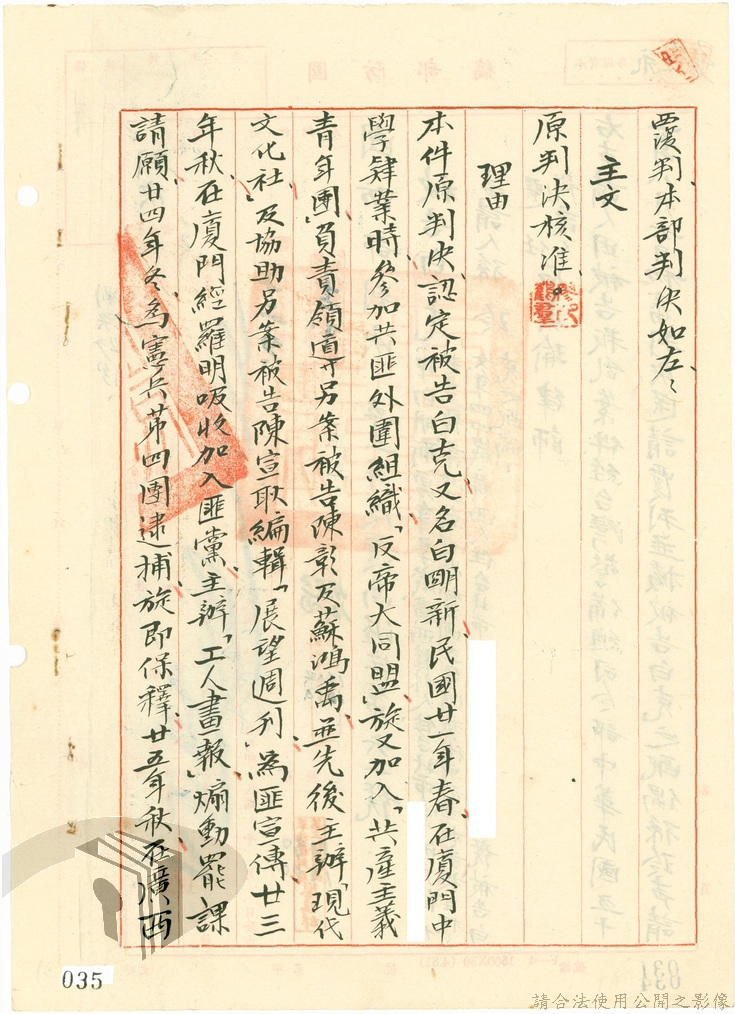 覆判本部判決如左：
主文
原判決核准。
理由
本件原判決認定被告白克又名白明新民國廿一年春在廈門中
學肄業時參加共匪外圍組織「反帝大同盟」旋又加入「共產主義
青年團」負責領導另案被告陳彰及蘇鴻禹並先後主辦「現代
文化社」及協助另案被告陳宣耿編輯「展望週刊」為匪宣傳廿三
年秋在廈門經羅明吸收加入匪黨主辦「工人畫報」煽動罷課
請願廿四年冬為憲兵第四團逮捕旋即保釋廿五年秋在廣西
035
請合法使用公開之影像